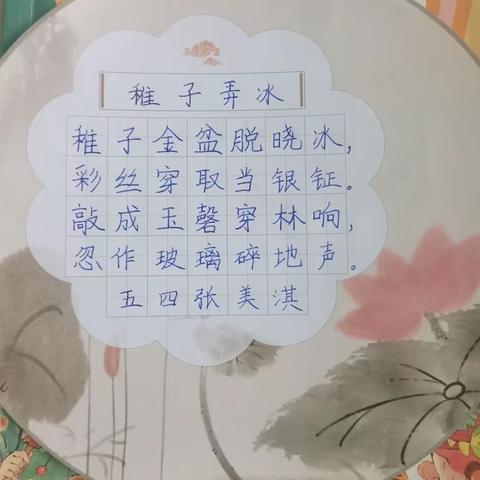 稚子弄冰
稚子金盆脱晓冰，
彩丝穿取当银钲。
敲成玉磬穿林响，
忽作玻璃碎地声。
五四张美淇